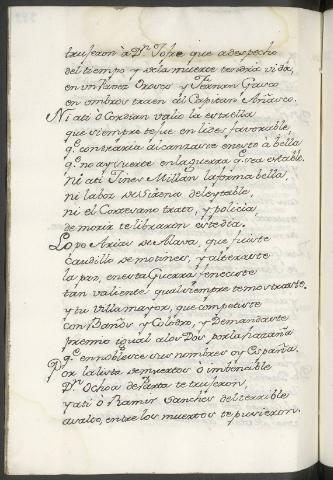 truseron à D.n Tofre que adespecho
del tiempo y dela muerte tendrà vida,
en un Pavez Orozco y Fernan Gasco
en ombros traen al Capitan Añasco.
Ni ati ò Cordian valio la estrella
que siempre te fue en lides favorable
q.e contraria alcanzaste en esto à bella
q.e no ay suerte en la guerra q.e sea estable.
ni ati Gines Millan la forma bella,
ni la boz de Sirena deleytable,
ni el Cortesano trato, y policia,
de morir te libraron este dia.
Lopo Arias de Alava, que fuiste
Caudillo de motines, y alteraste
la paz, en esta Guerra feneciste
tan valiente qual siempre te mostraste.
y tu Villamayor, que competiste
con Baños y Colotro, y Demandaste
premio igual alos Dos por la hazaña
q.e ennoblesce sus nombres oy España.
Por la lista de muertos ò
D.n Ochoa de Parta te truseron,
y ati ò Ramir Sanches del terrible
avalos, entre los muertos te pusieron.